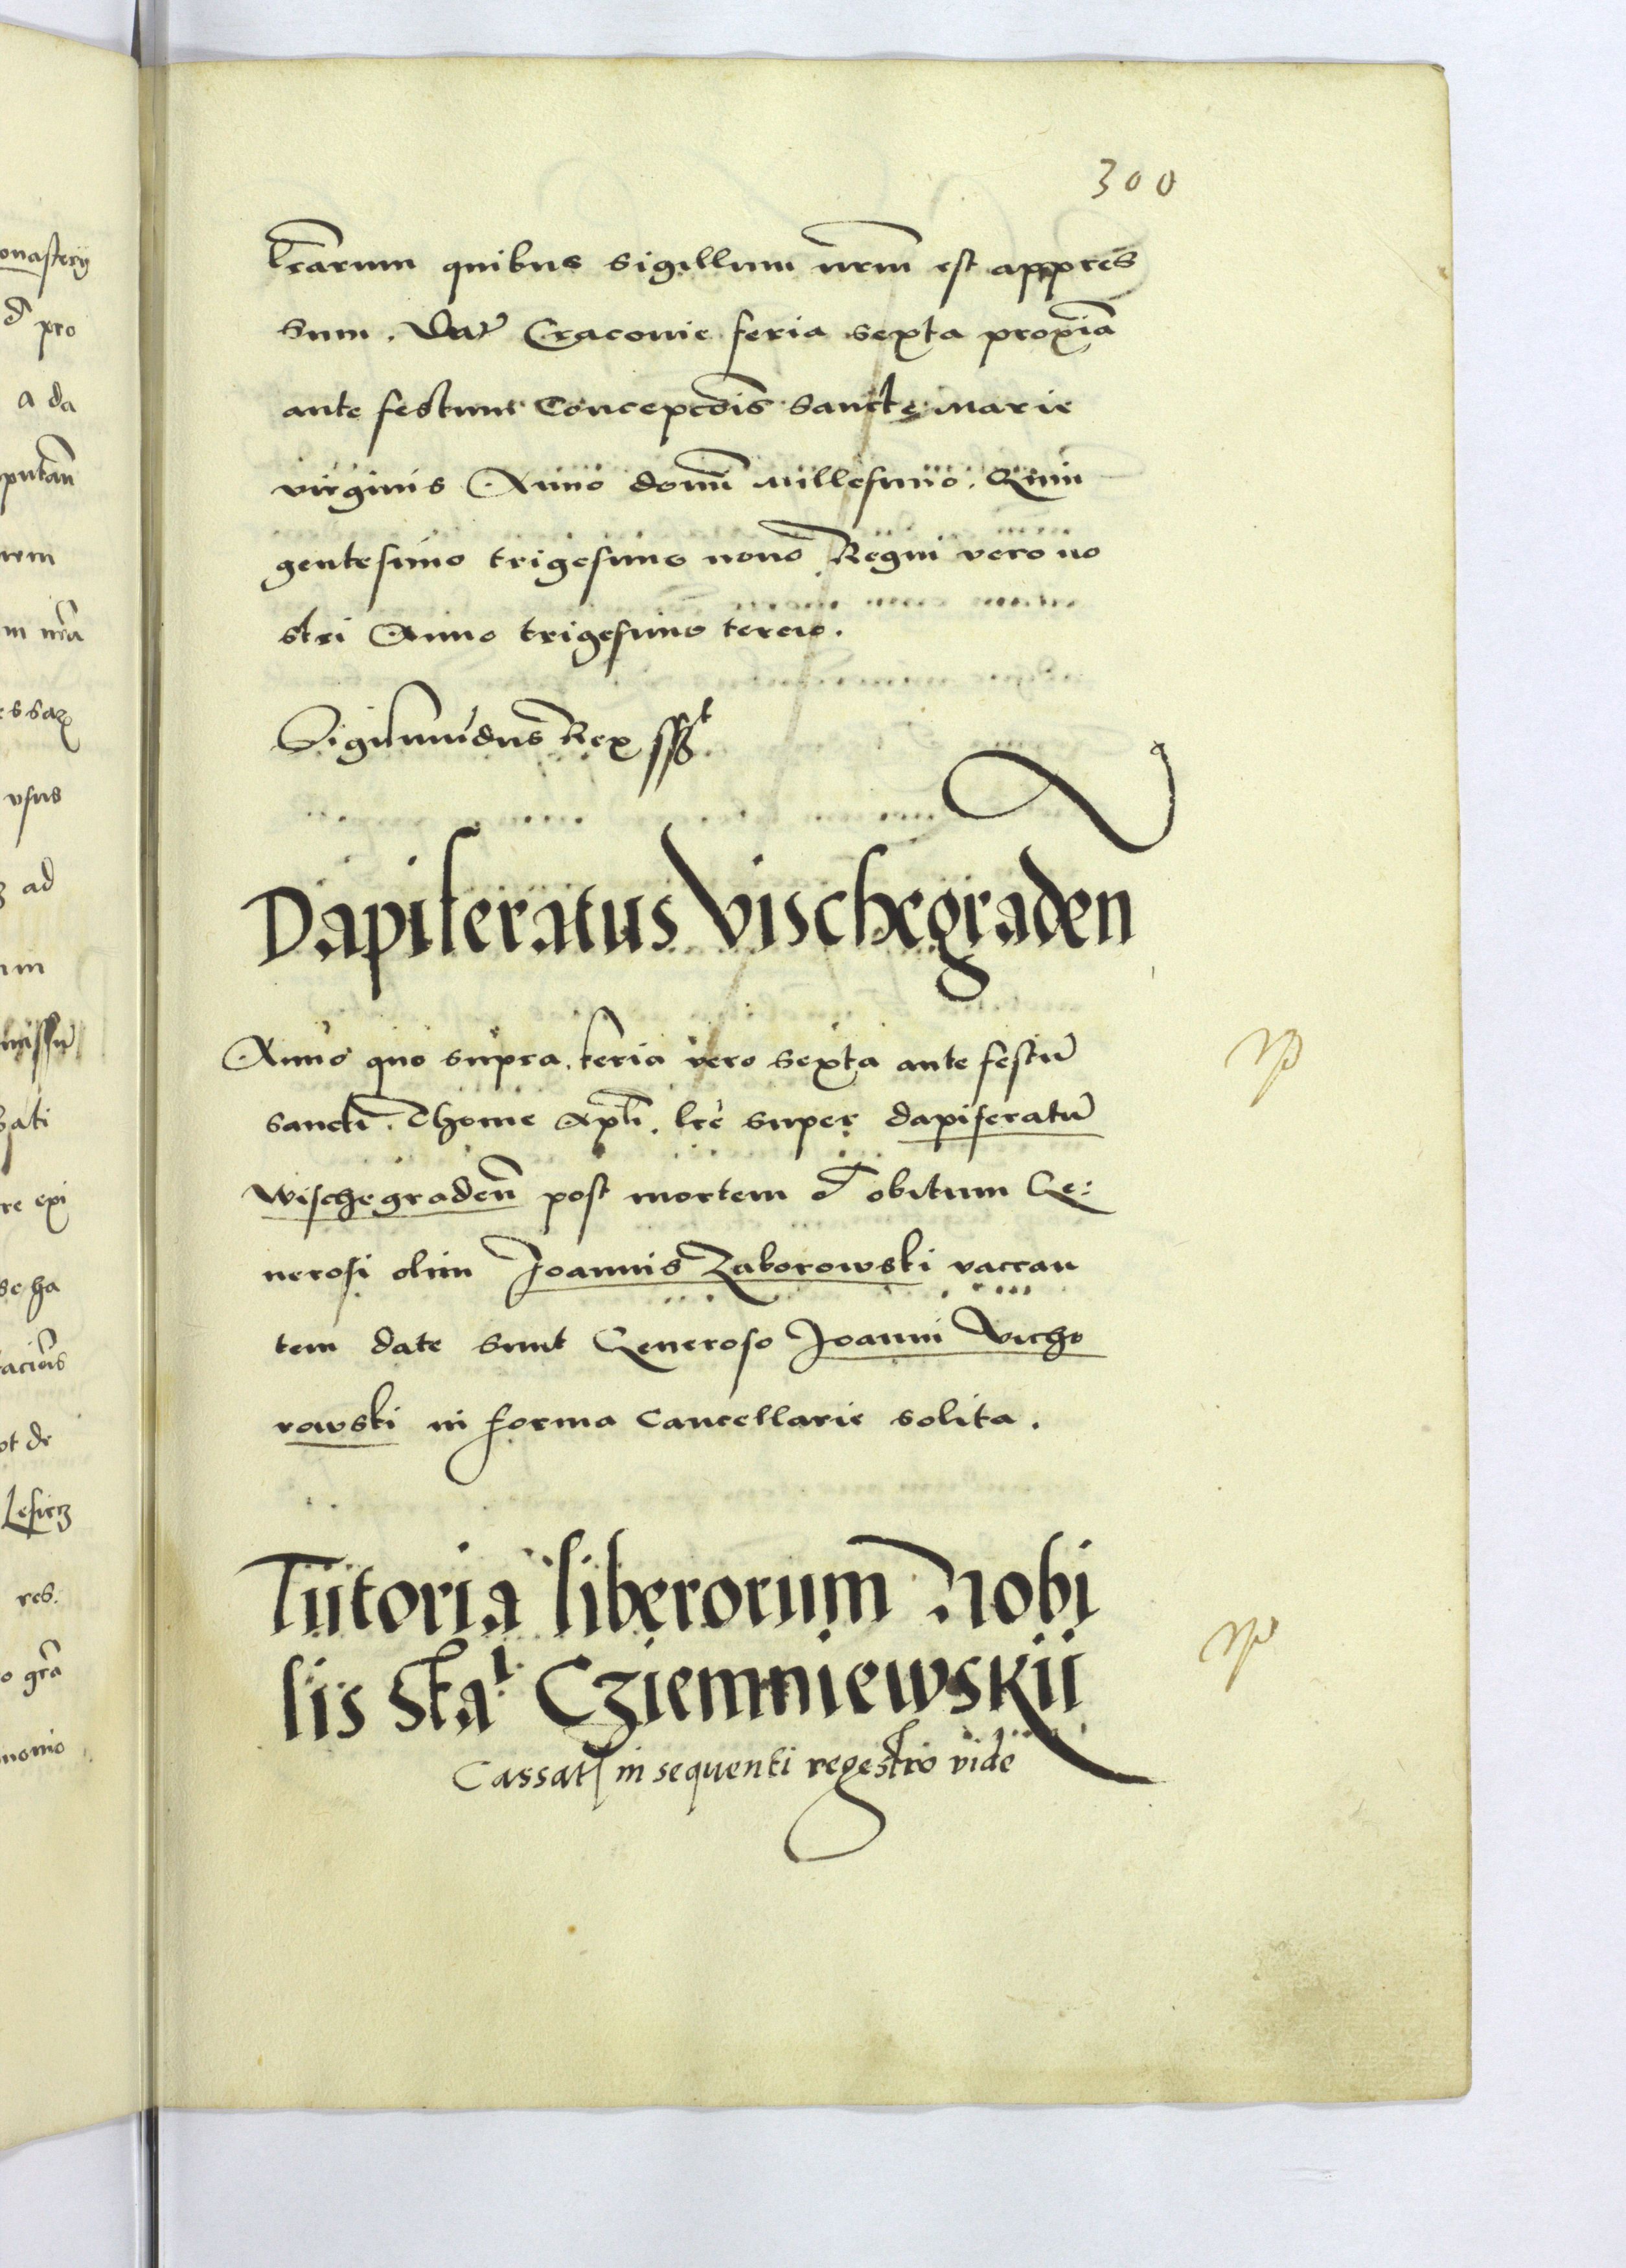 300
lrarum quibus sigillum nrm est appres
sum. Dat Cracovie feria sexta proxia
ante festum Concepcois Sancte Marie
virginis Anno domi Millesimo. Quin
gentesimo trigesimo nono Regni vero no
stri Anno trigesimo tercio.
Sigismudus Rex sst
Dapiferatus Vischegraden
Anno quo supra. feria vero sexta ante festu
sancti. Thome Apli. lre super dapiferatu
Wischegraden post mortem et obitum Ge:
nerosi olim Joannis Zaborowski vaccan
tem date sunt Generoso Joanni Vicho
rowski in forma Cancellarie solita.
Tutoria liberorum Nobi
lis Sta Cziemniewskii
Cassat in sequenti regestro vide
onastery
et pro
a da
putan
rem
m nra
essar
vsus
ad
um
missu
bati
re epi
se ha
acios
ot de
Lesicz
res.
o gra
monio